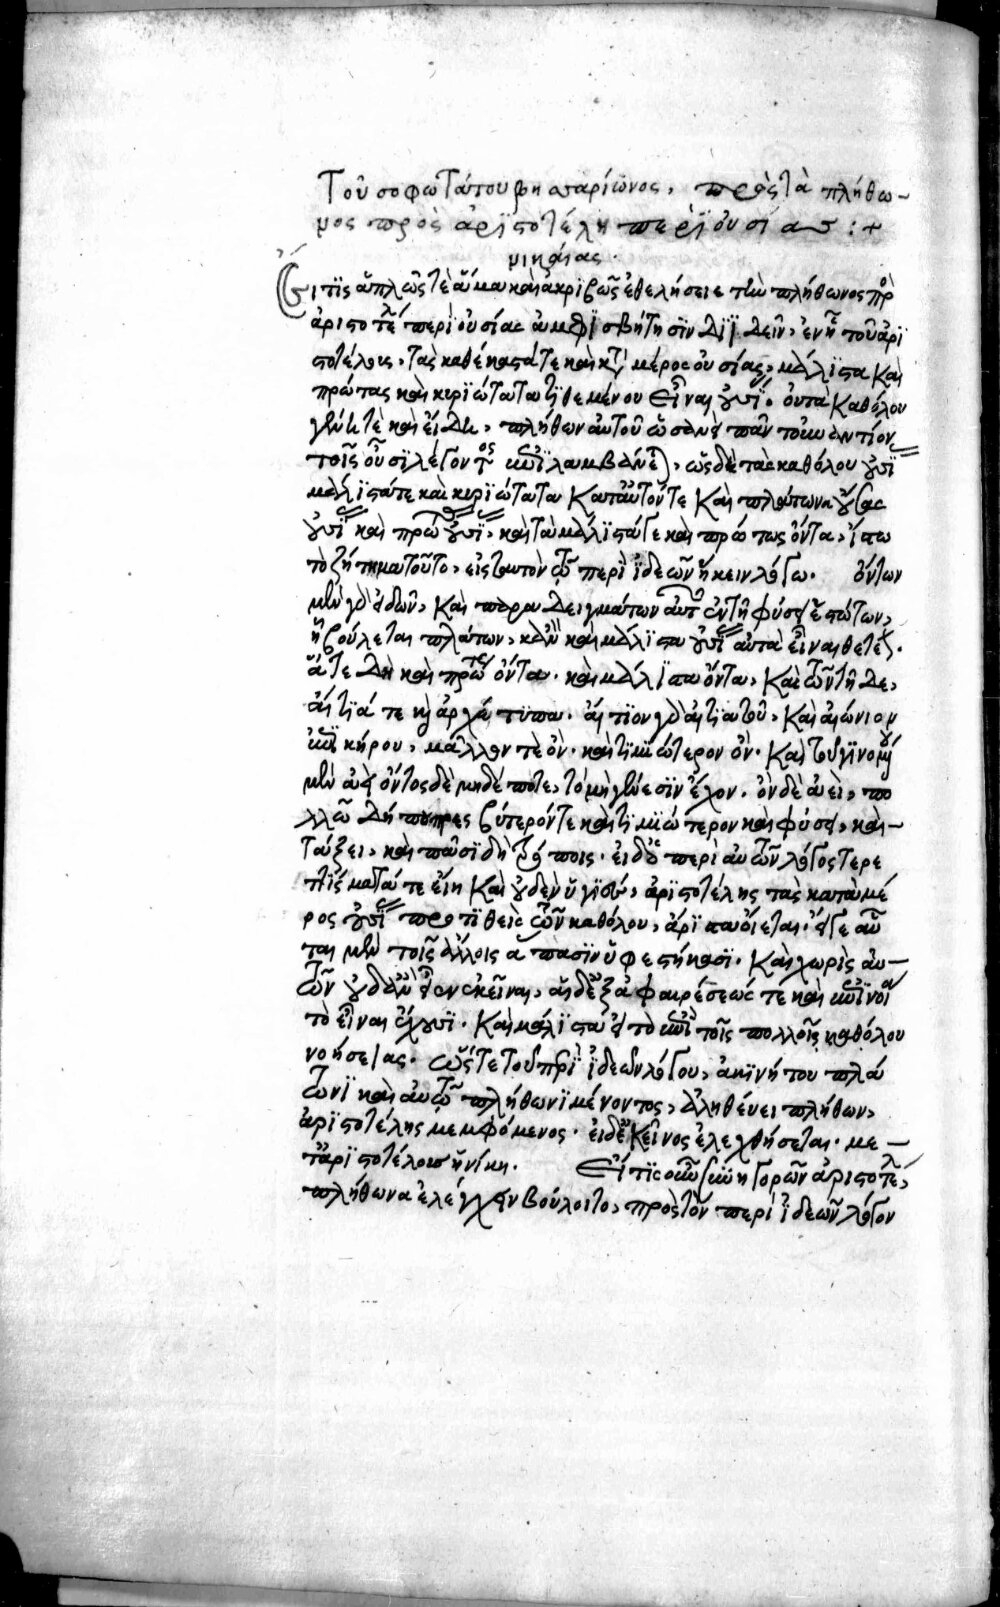 Τοῦ σοφωτάτου βησσαρίωνος, πρὸς τὰ πλήθω-
νος πρὸς ἀριστοτέλη περὶ οὐσίας :+
Εἴ τις ἁπλῶς τὲ ἅμα καὶ ἀκριβῶς ἐθελήσειε τὴν πλήθωνος πρὸς
ἀριστοτέλη περὶ οὐσίας ἀμφισβήτησιν ἰδεῖν, ἐν τοῦ ἀρι
στοτέλους, τὰς καθέκαστά τε καὶ κατὰ μέρος οὐσίας, μάλιστα καὶ
πρώτας καὶ κυριώτατα τιθεμένου εἶναι οὐσίας, οὐ τὰ καθόλου
γένη τὲ καὶ εἴδη, πλήθων αὐτοῦ ὥσπερ πᾶν τοὐναντίον
τοῖς οὖσι λέγοντος ἐπιλαμβάνεται, ὡς δὲ τὰς καθόλου οὐσίας
μάλιστά τε καὶ κυριώτατα κατ' αὐτόν τε καὶ πλάτωνα οὔσας
οὐσίας καὶ πρώτας οὐσίας, καὶ τὰ μάλιστά τε καὶ πρώτως ὄντα, ἴστω
τὸ ζήτημα τοῦτο, εἰς ταυτὸν τῷ περὶ ἰδεῶν ἥκειν λόγῳ. ὄντων
μὲν γὰρ εἰδῶν, καὶ παραδειγμάτων αὐτῶν ἐν τῇ φύσει ἑστώτων,
ᾗ βούλεται πλάτων, κἂν καὶ μάλιστα οὐσίας αὐτὰ εἶναι θετέον.
ἅτε δὴ καὶ πρώτως ὄντα. καὶ μάλιστα ὄντα, καὶ τῶν τῇδε,
αἴτιά τε καὶ ἀρχέτυπα. αἴτιον γὰρ αἰτιατοῦ, καὶ αἰώνιον
ἐπικήρου, μᾶλλον τὲ ὂν. καὶ τιμιώτερον ὄν. καὶ τοῦ γινομένου
μὲν ἀεὶ ὄντος δὲ μηδέποτε, τὸ μὴ γένεσιν ἔχον. ὂν δὲ ἀεὶ, πο
λλῷ δή που πρεσβύτερόν τε καὶ τιμιώτερον καὶ φύσει, καὶ
τάξει, καὶ πᾶσι δὴ τρόποις. εἰ δ' ὁ περὶ αὐτῶν λόγος τερε
τίσματά τε εἴη καὶ οὐδὲν ὑγιὲς, ἀριστοτέλης τὰς κατὰ μέ
ρος οὐσίας προτιθεὶς τῶν καθόλου, ἄριστα οἴεται. εἴγε αὗ
ται μὲν τοῖς ἄλλοις ἅπασιν ὑφεστήκασι. καὶ χωρὶς αὐ-
τῶν οὐδὲν ἂν ἐκεῖναι, αἱ δ' ἐξ ἀφαιρέσεώς τε καὶ ἐπινοίας
τὸ εἶναι ἔχουσι. καὶ μάλιστα τὸ ἐπὶ τοῖς πολλοῖς καθόλου
νοήσεως. ὥστε τοῦ περὶ ἰδεῶν λόγου, ἀκινήτου πλά
τωνι καὶ αὐτῷ πλήθωνι μένοντος, ἀληθεύει πλήθων,
ἀριστοτέλης μεμφόμενος. εἰ δ' ἐκεῖνος ἐλεγχθήσεται. με-
τ' ἀριστοτέλους ἡ νίκη. Εἴ τις οὖν συνηγορῶν ἀριστοτέλει,
πλήθωνα ἐλέγχειν βούλοιτο, πρὸς τὸν περὶ ἰδεῶν λόγον